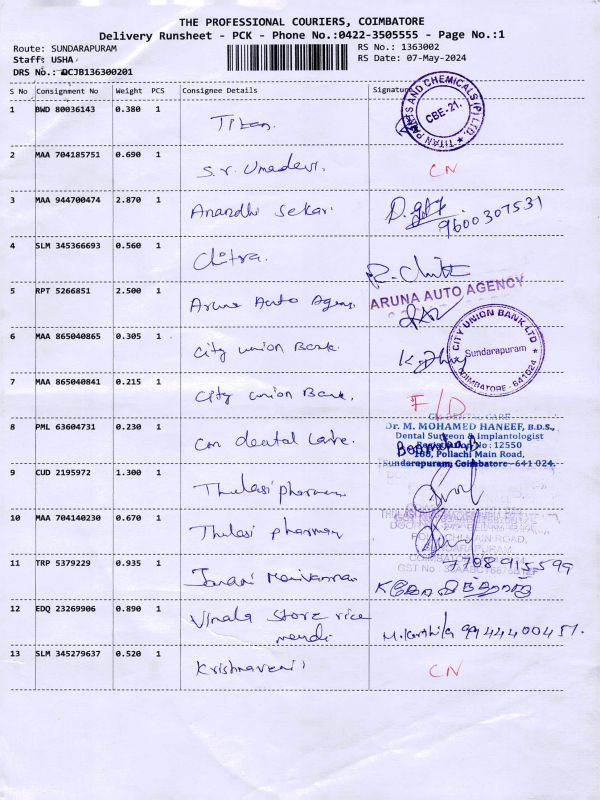 THE PROFESSIONAL COURIERS, COIMBATORE
Delivery Runsheet - PCK - Phone No.:0422-3505555 - Page No.:1
Route: SUNDARAPURAM
RS No.: 1363002
Staff: USHA
RS Date: 07-May-2024
DRS No.: QCJB136300201
S No Consignment No Weight PCS Consignee Details Signature
1 BWD 80036143 0.380 1 Titan.
AND CHEMICALS (P) LTD. ★ TITAN
CBE-21.
2 MAA 704185751 0.690 1 S.V. Umadevi. CN
3 MAA 944700474 2.870 1 Anandhi Sekar.
9600307531
4 SLM 345366693 0.560 1 Chitra.
R. Chitra
5 RPT 5266851 2.500 1 Aruna Auto Agency
ARUNA AUTO AGENCY
6 MAA 865040865 0.305 1 City union Bank.
CITY UNION BANK LTD
Sundarapuram
COIMBATORE - 641024
7 MAA 865040841 0.215 1 City union Bank. F/D
8 PML 63604731 0.230 1 dental care.
DENTAL CARE
Dr. M. MOHAMED HANEEF, B.D.S.,
Dental Surgeon & Implantologist
Registration No: 12550
188, Pollachi Main Road,
Sundarapuram, Coimbatore - 641 024.
9 CUD 2195972 1.300 1 Thulasi pharmacy
10 MAA 704140230 0.670 1 Thulasi pharmacy
11 TRP 5379229 0.935 1 Manivannan
7708915599
12 EDQ 23269906 0.890 1 Vimala Store rice
mandi
9944400457.
13 SLM 345279637 0.520 1 Krishnaveni CN